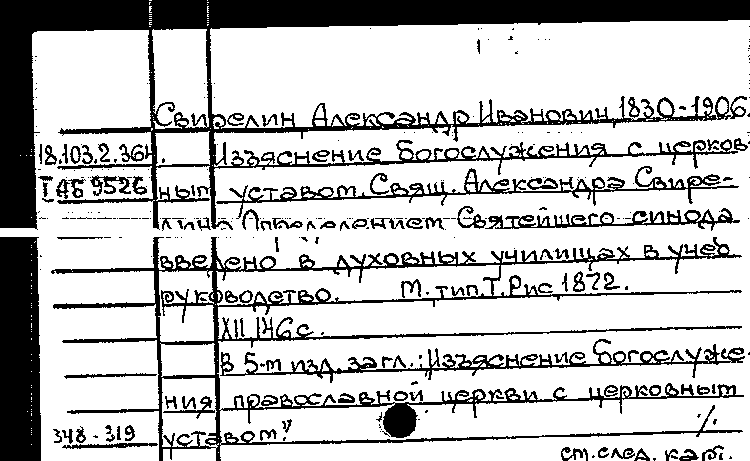 Свирелин, Александр Иванович, 1830-1906.
18.103.2.364. Изъяснение богослужения с церков-
I АБ 9526 ным уставом. Свящ. Александра Свире-
лина Определением Святейшего синода
введено в духовных училищах в учеб
руководство. М. тип. Т. Рис, 1872.
XII, 146 с.
В 5-м изд. загл.: "Изъяснение богослуже-
ния православной церкви с церковным
348-319 уставом."
см. след. карт.